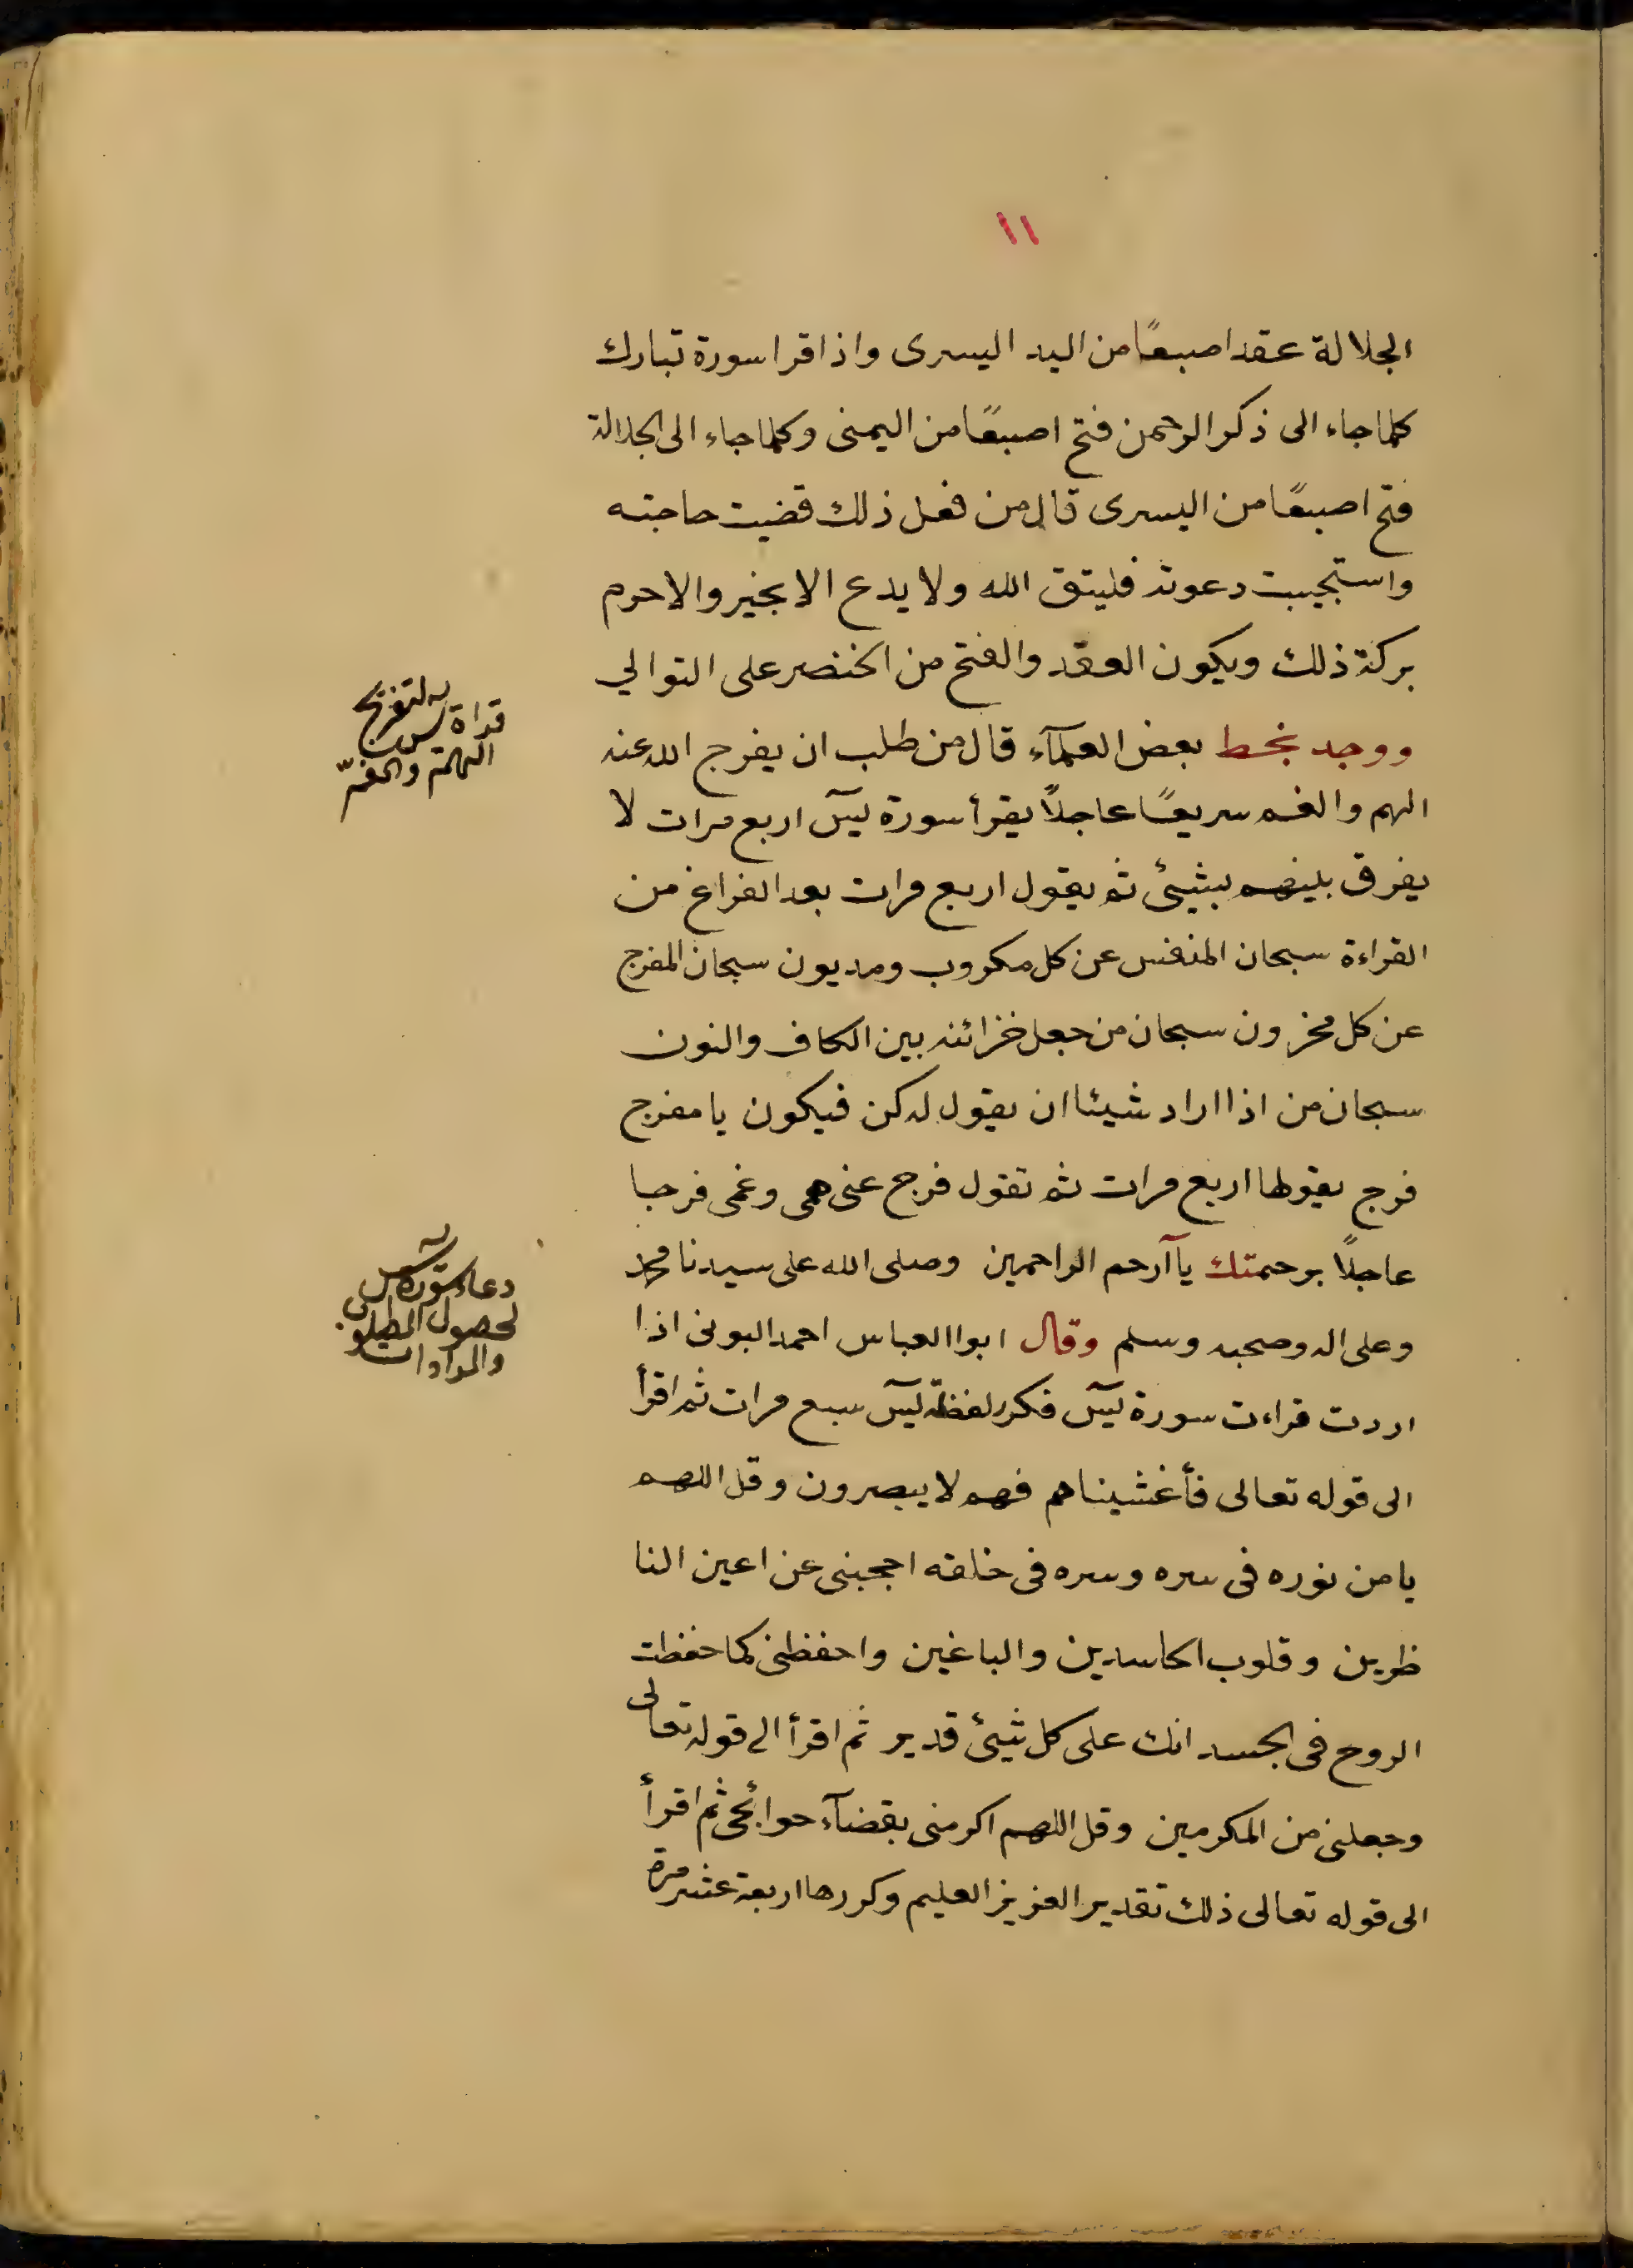 ١١
الجلالة عقد اصبعًا من اليد اليسرى واذا قرا سورة تبارك
كلما جاء الى ذكر الرحمن فتح اصبعًا من اليمنى وكلما جاء الى الجلالة
فتح اصبعًا من اليسرى قال من فعل ذلك قضيت حاجته
واستجيبت دعوته فليتق الله ولا يدع الا بخير والا حرم
بركة ذلك ويكون العقد والفتح من الخنصر على التوالي
ووجد بخط بعض العلمآء قال من طلب ان يفرج الله عنه
الهم والغم سريعًا عاجلاً يقرأ سورة يسٓ اربع مرات لا
يفرق بينهم بشيئ ثم يقول اربع مرات بعد الفراغ من
القراءة سبحان المنفس عن كل مكروب ومديون سبحان المفرج
عن كل محزون سبحان من جعل خزائنه بين الكاف والنون
سبحان من اذا اراد شيئا ان يقول له كن فيكون يا مفرج
فرج يقولها اربع مرات ثم تقول فرج عنى همى وغمى فرجا
عاجلاً برحمتك يآ آرحم الراحمين وصلى الله على سيدنا محمد
وعلى اله وصحبه وسلم وقال ابوا العباس احمد البونى اذا
اردت قراءت سورة يسٓ فكرر لفظة يسٓ سبع مرات ثم اقرأ
الى قوله تعالى فأغشيناهم فهم لا يبصرون وقل اللهم
يا من نوره فى سره وسره فى خلقه احجبنى عن اعين النا
ظرين وقلوب الحاسدين والباغين واحفظنى كما حفظت
الروح فى الجسد انك على كل شيئ قدير ثم اقرأ الى قوله تعالى
وجعلنى من المكرمين وقل اللهم اكرمنى بقضآء حوائجى ثم اقرأ
الى قوله تعالى ذلك تقدير العزيز العليم وكررها اربعة عشر مرة
قراة يس لتفريج
الهم والغمّ
دعاء سورة يس
لحصول المطلوب
والمرادات